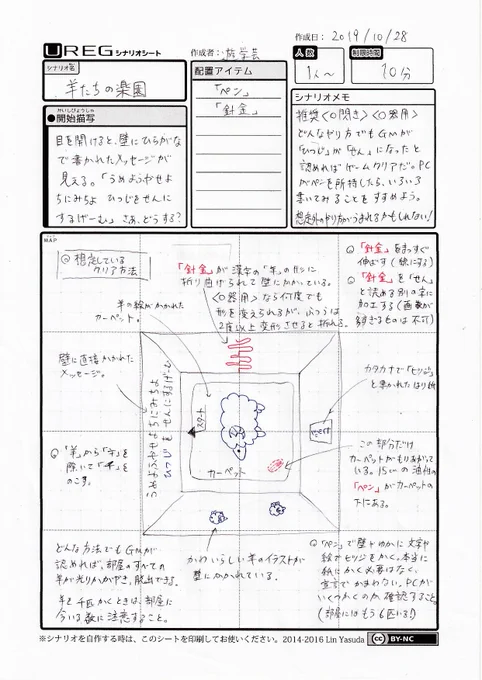 作成日: 2019/10/28
UREG シナリオシート
作成者: 遊学芸
シナリオ名
羊たちの楽園
人数
1人〜
制限時間
10分
かいしびょうしゃ
●開始描写
目を開けると、壁にひらがな
で書かれたメッセージが
見える。「うめよふやせよ
ちにみちよ ひつじをせんに
するげーむ」さあ、どうする?
配置アイテム
「ペン」
「針金」
シナリオメモ
推奨<○閃き><○器用>
どんなやり方でもGMが
「ひつじ」が「せん」になったと
認めればゲームクリアだ。PC
がペンを所持したら、いろいろ
書いてみることをすすめよう。
想定外のやり方がうまれるかもしれない!
MAP
◎想定している
クリア方法
「針金」が漢字の「羊」のカンジに
折り曲げられて壁にかかっている。
<○器用>なら何度でも
形を変えられるが、ふつうは
2度以上変形させると折れる。
「針金」をまっすぐ
伸ばす(線にする)
「針金」を「せん」
と読める別の字に
加工する(画数が
多すぎるものは不可)
羊の絵がかかれた
カーペット。
壁に直接かかれた
メッセージ。
うめよふやせよちにみちよ
ひつじをせんにするげーむ
スタート
カーペット
カタカナで「ヒツジ」
と書かれたはり紙
ヒツジ
この部分だけ
カーペットがもりあがって
いる。15cmの油性の
「ペン」がカーペットの
下にある。
のこす。
かわいらしい羊のイラストが
壁にかかれている。
どんな方法でもGMが
認めれば、部屋のすべての
羊が光りかがやき、脱出できる。
羊を千匹かくときは、部屋に
今いる数に注意すること。
「ペン」で壁やゆかに文字や
絵でヒツジをかく。本当に
紙にかく必要はなく、
宣言でかまわない。PCが
いくつかくのか確認すること。
(部屋にはもう6匹いる!)
※シナリオを自作する時は、このシートを印刷してお使いください。2014-2016 Lin Yasuda
cc BY-NC